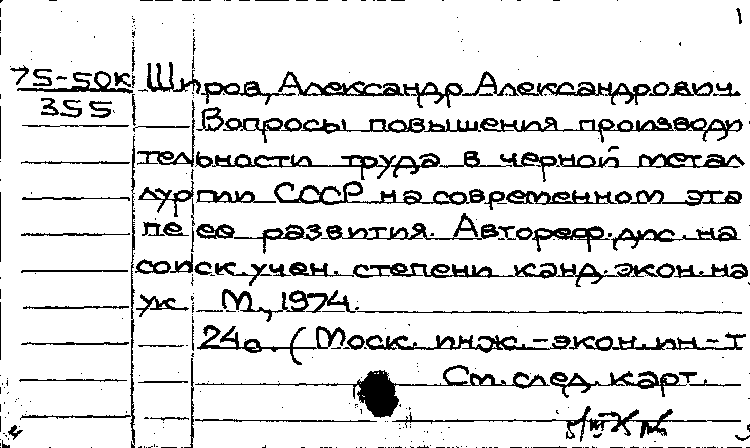 1
75-50к Широв, Александр Александрович.
355
Вопросы повышения производи
тельности труда в черной метал
лургии СССР на современном эта
пе ее развития. Автореф. дис. на
соиск. учен. степени канд. экон. на
ук М., 1974.
24с. (Моск. инж.-экон. ин-т
См. след. карт.